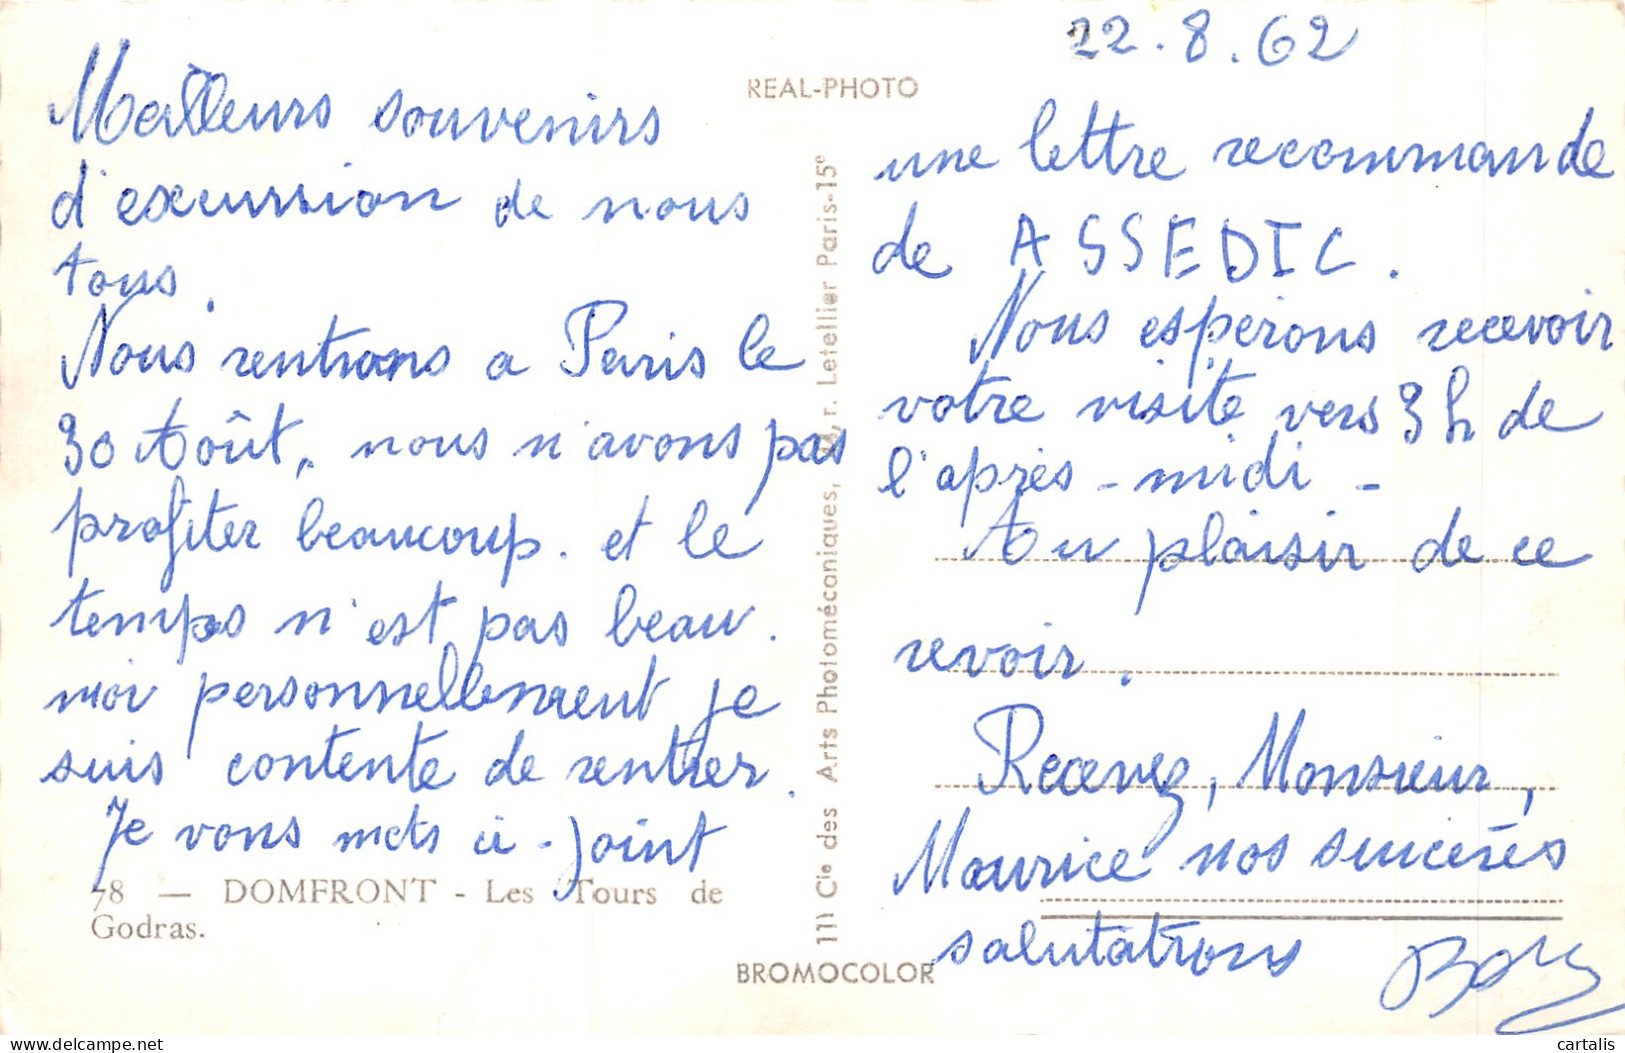 22.8.62
REAL-PHOTO
Meilleurs souvenirs
d'excursion de nous
tous.
Nous rentrons a Paris le
30 Août, nous n'avons pas
profiter beaucoup. et le
temps n'est pas beau.
moi personnellement je
suis contente de rentrer.
Je vous mets ci-joint
78 — DOMFRONT - Les Tours de
Godras.
111 Cie des Arts Photomécaniques, r. Letellier Paris-15e
BROMOCOLOR
une lettre recommande
de ASSEDIC.
Nous espérons recevoir
votre visite vers 3 h de
l'après-midi -
Au plaisir de ce
revoir.
Recevez, Monsieur,
Maurice nos sincères
salutations
cartalis